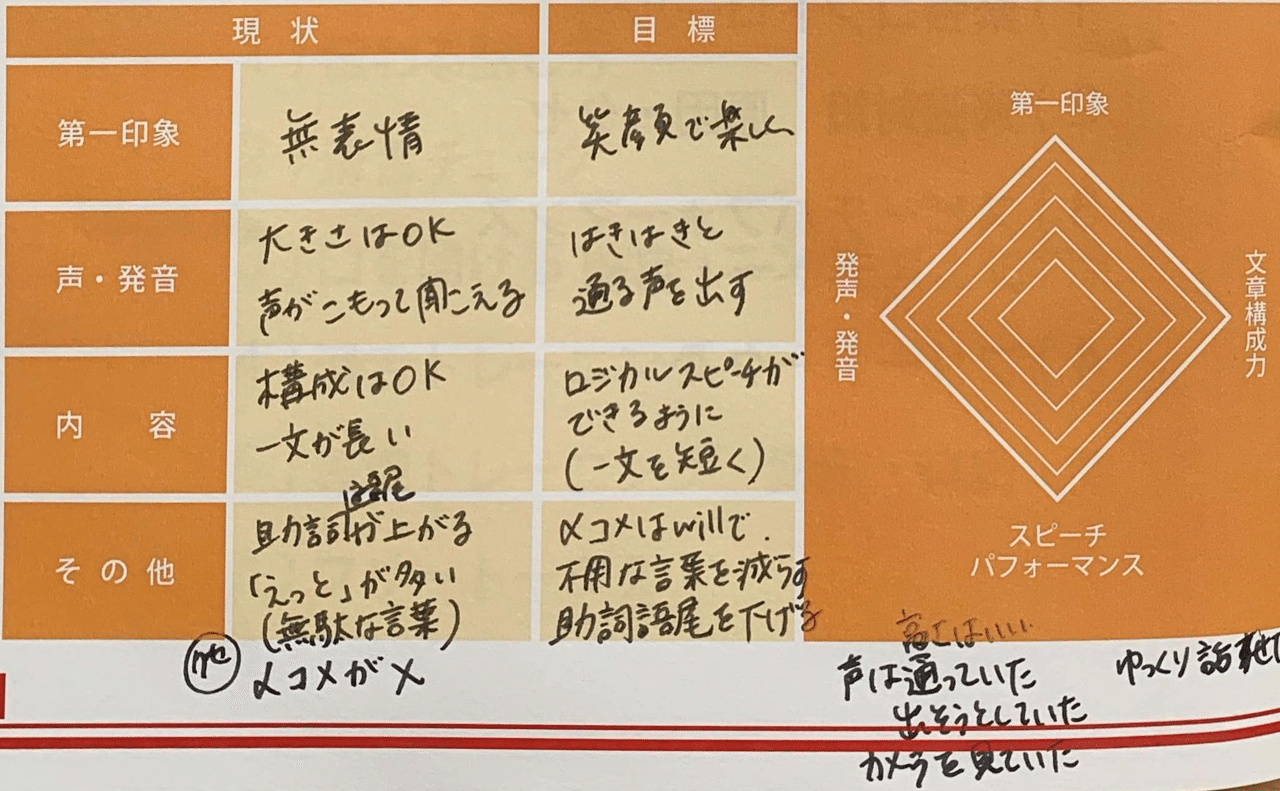 現状
目標
第一印象
無表情
笑顔で楽しく
声・発音
大きさはOK
声がこもって聞こえる
はきはきと
通る声を出す
内容
構成はOK
一文が長い
ロジカルスピーチが
できるように
(一文を短く)
その他
語尾
助詞が上がる
「えっと」が多い
(無駄な言葉)
メコメはwillで
不用な言葉を減らす
助詞語尾を下げる
クセ
メコメが×
第一印象
発声・発音
文章構成力
スピーチ
パフォーマンス
高さはいい
声は通っていた
出そうとしていた
カメラを見ていた
ゆっくり話せて